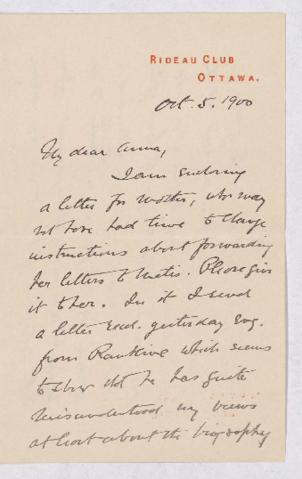 RIDEAU CLUB
OTTAWA.
Oct. 5. 1900
My dear Anna,
I am enclosing
a letter for Mother, who may
not have had time to change
instructions about forwarding
her letters to Metis. Please give
it to her. In it I send
a letter recd. yesterday Evg.
from Rankine which seems
to show that he has quite
misunderstood my views
at least about the biography